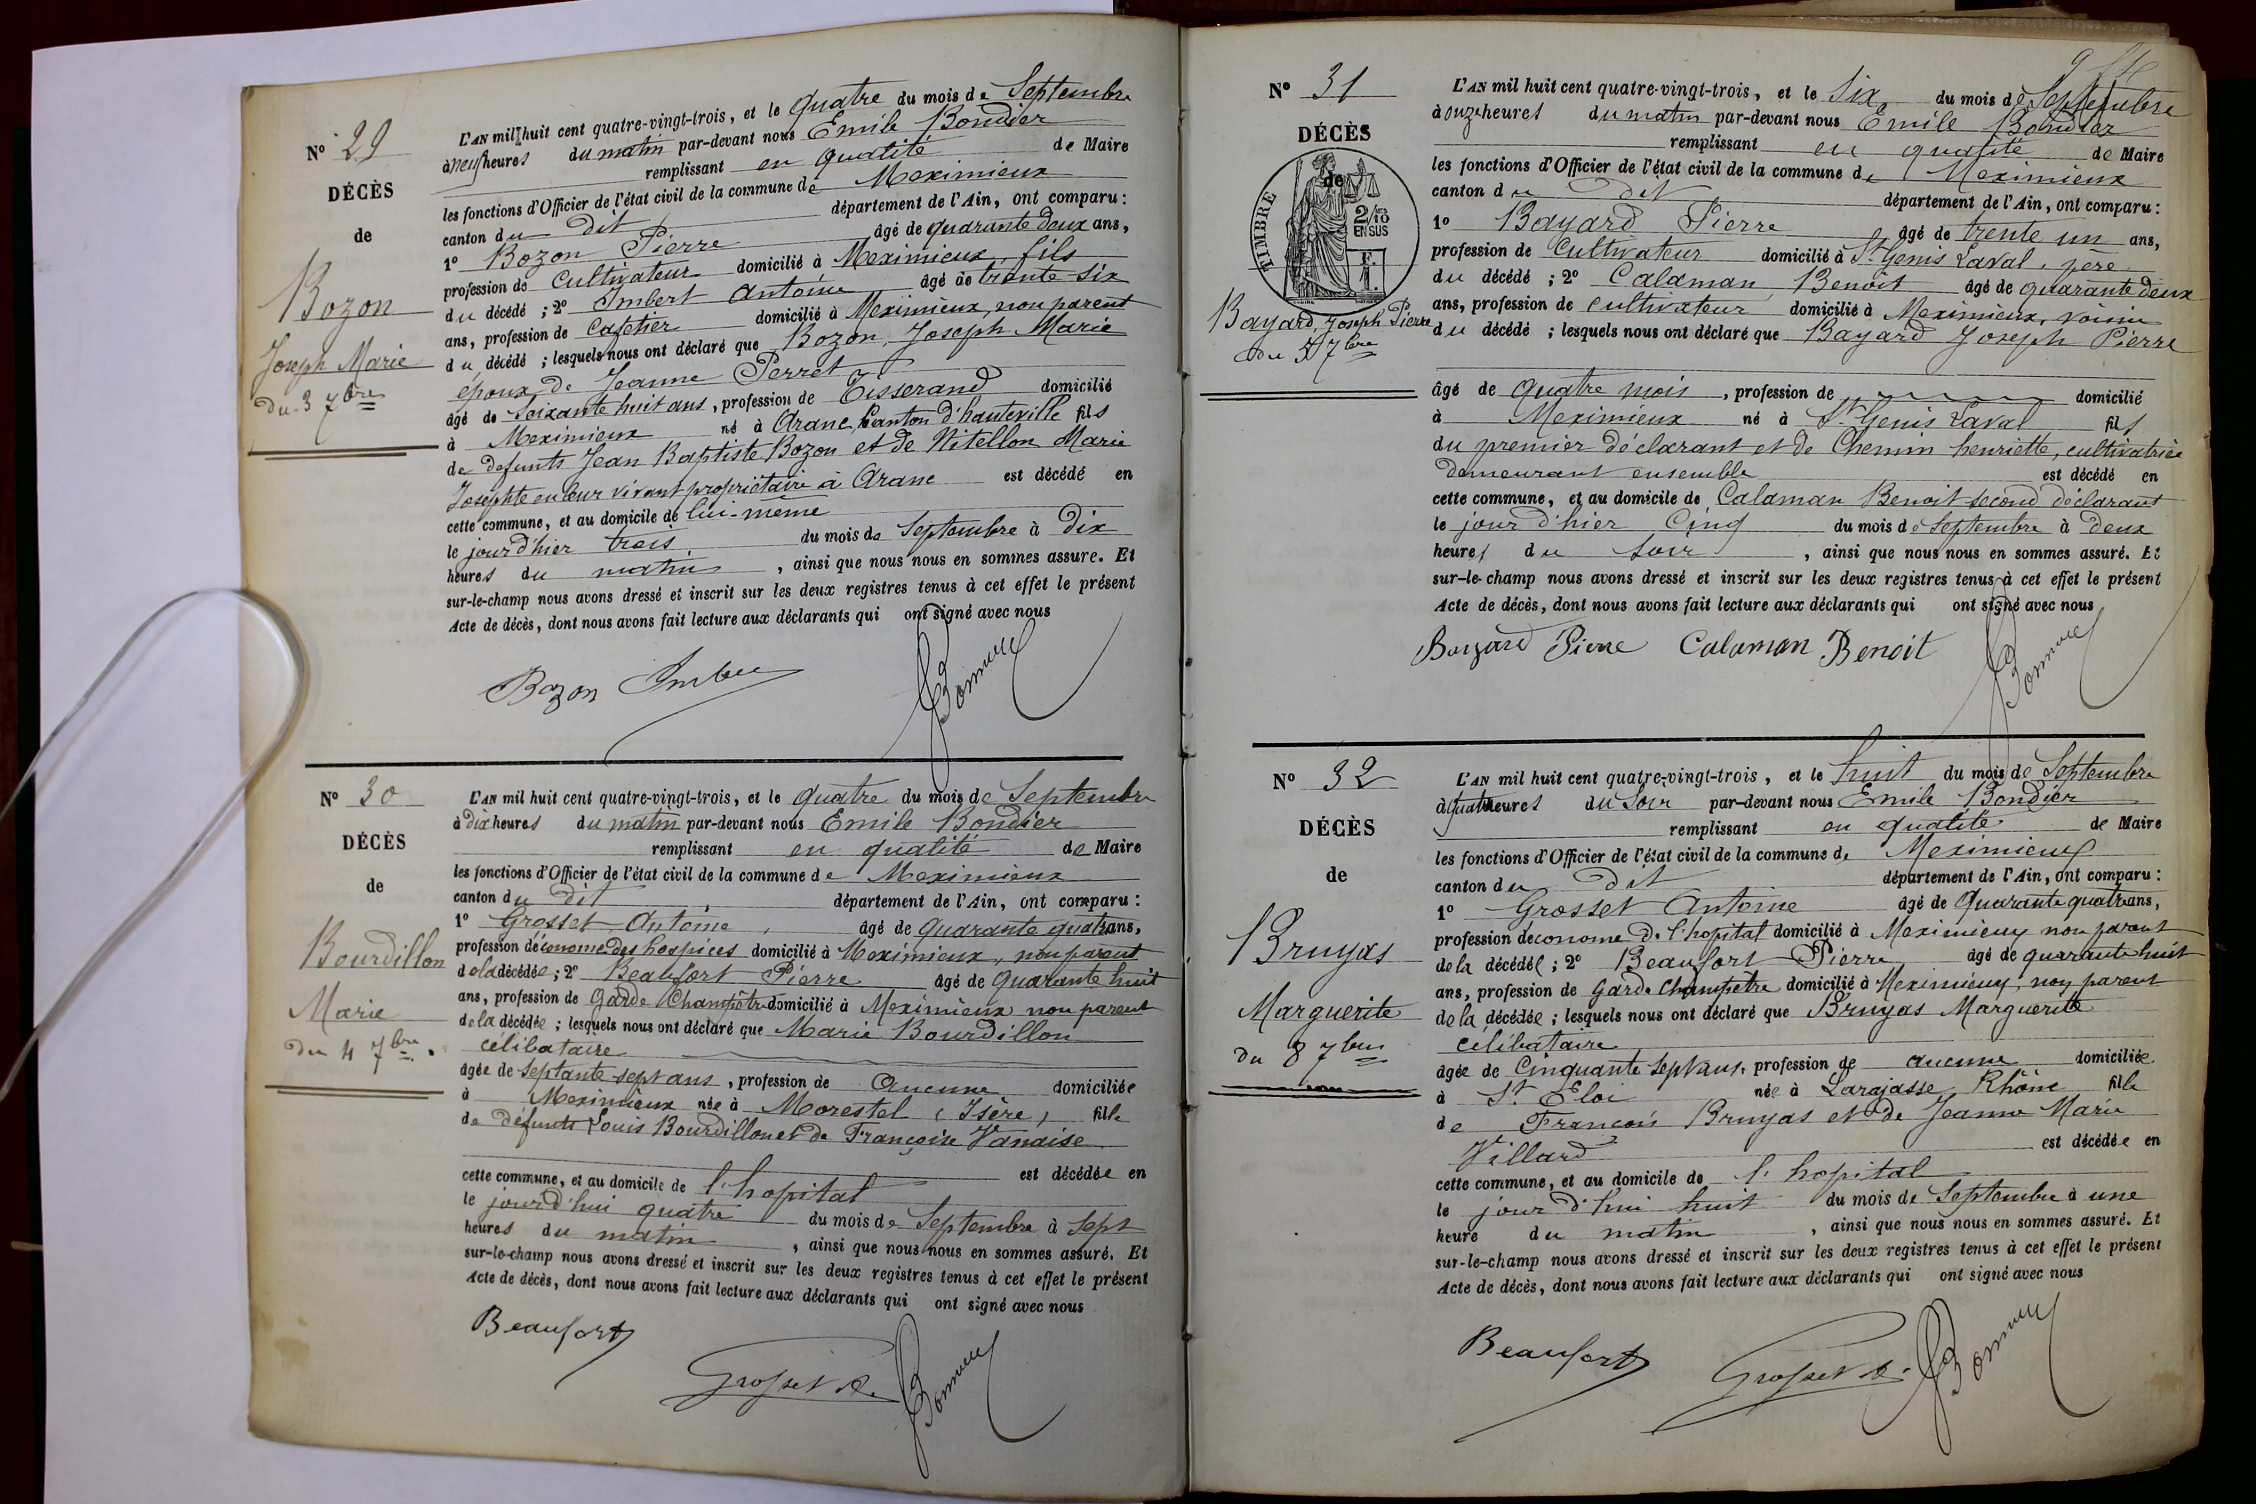 N° 29
DÉCÈS
de
Bozon
Joseph Marie
du 3 7bre
L'AN mil huit cent quatre-vingt-trois, et le quatre du mois de Septembre
à neuf heures du matin par-devant nous Emile Bondier
remplissant en qualité de Maire
les fonctions d'Officier de l'état civil de la commune de Meximieux
canton du dit département de l'Ain, ont comparu:
1° Bozon Pierre âgé de quarante deux ans,
profession de Cultivateur domicilié à Meximieux, fils
du décédé ; 2° Imbert Antoine âgé de trente-six
ans, profession de Cafetier domicilié à Meximieux, non parent
du décédé ; lesquels nous ont déclaré que Bozon, Joseph Marie
époux de Jeanne Perret
âgé de Soixante huit ans, profession de Tisserand domicilié
à Meximieux né à Arane, Canton d'hauteville fils
de defunts Jean Baptiste Bozon et de Nitellon Marie
Josephte en leur vivant propriétaire à Arane est décédé en
cette commune, et au domicile de lui-même
le jour d'hier trois du mois de Septembre à Dix
heures du matin, ainsi que nous nous en sommes assuré. Et
sur-le-champ nous avons dressé et inscrit sur les deux registres tenus à cet effet le présent
Acte de décès, dont nous avons fait lecture aux déclarants qui ont signé avec nous
Bozon
N° 30
DÉCÈS
de
Bourdillon
Marie
du 4 7bre
L'AN mil huit cent quatre-vingt-trois, et le quatre du mois de Septembre
à dix heures du matin par-devant nous Emile Bondier
remplissant en qualité de Maire
les fonctions d'Officier de l'état civil de la commune de Meximieux
canton du dit département de l'Ain, ont comparu:
1° Grosset Antoine, âgé de quarante quatre ans,
profession d'économe des hospices domicilié à Meximieux, non parent
de la décédée ; 2° Beaufort Pierre âgé de Quarante huit
ans, profession de Garde Champêtre domicilié à Meximieux non parent
de la décédée ; lesquels nous ont déclaré que Marie Bourdillon
célibataire
âgée de Septante sept ans, profession de Aucune domiciliée
à Meximieux née à Morestel (Isère) fille
de défunts Louis Bourdillon et de Françoise Vanaise
est décédée en
cette commune, et au domicile de l'hopital
le jour d'hui quatre du mois de Septembre à Sept
heures du matin, ainsi que nous nous en sommes assuré. Et
sur-le-champ nous avons dressé et inscrit sur les deux registres tenus à cet effet le présent
Acte de décès, dont nous avons fait lecture aux déclarants qui ont signé avec nous
Beaufort
Grosset A.
N° 31
DÉCÈS
de
TIMBRE
2/10
EN SUS
Bayard, Joseph Pierre
du 5 7bre
L'AN mil huit cent quatre-vingt-trois, et le Six du mois de Septembre
à onze heures du matin par-devant nous Emile Bondier
remplissant en qualité de Maire
les fonctions d'Officier de l'état civil de la commune de Meximieux
canton du dit département de l'Ain, ont comparu:
1° Bayard Pierre âgé de trente un ans,
profession de Cultivateur domicilié à St. Genis Laval, père
du décédé ; 2° Calaman Benoit âgé de quarante deux
ans, profession de cultivateur domicilié à Meximieux, voisin
du décédé ; lesquels nous ont déclaré que Bayard Joseph Pierre
âgé de quatre mois, profession de domicilié
à Meximieux né à St. Genis Laval fils
du premier déclarant et de Chemin henriette, cultivatrice
demeurant ensemble est décédé en
cette commune, et au domicile de Calaman Benoit second déclarant
le jour d'hier Cinq du mois de Septembre à Deux
heures du Soir, ainsi que nous nous en sommes assuré. Et
sur-le-champ nous avons dressé et inscrit sur les deux registres tenus à cet effet le présent
Acte de décès, dont nous avons fait lecture aux déclarants qui ont signé avec nous
Bayard Pierre Calaman Benoit
N° 32
DÉCÈS
de
Bruyas
Marguerite
du 8 7bre
L'AN mil huit cent quatre-vingt-trois, et le huit du mois de Septembre
à quatre heures du Soir par-devant nous Emile Bondier
remplissant en qualité de Maire
les fonctions d'Officier de l'état civil de la commune de Meximieux
canton du dit département de l'Ain, ont comparu:
1° Grosset Antoine âgé de Quarante quatre ans,
profession d'econome de l'hopital domicilié à Meximieux non parent
de la décédée ; 2° Beaufort Pierre âgé de quarante huit
ans, profession de Garde Champetre domicilié à Meximieux, non parent
de la décédée ; lesquels nous ont déclaré que Bruyas Marguerite
célibataire
âgée de Cinquante Sept ans, profession de aucune domiciliée
à St. Eloi née à Larajasse, Rhône fille
de François Bruyas et de Jeanne Marie
Villard est décédée en
cette commune, et au domicile de l'hopital
le jour d'hui huit du mois de Septembre à une
heure du matin, ainsi que nous nous en sommes assuré. Et
sur-le-champ nous avons dressé et inscrit sur les deux registres tenus à cet effet le présent
Acte de décès, dont nous avons fait lecture aux déclarants qui ont signé avec nous
Beaufort
Grosset A.